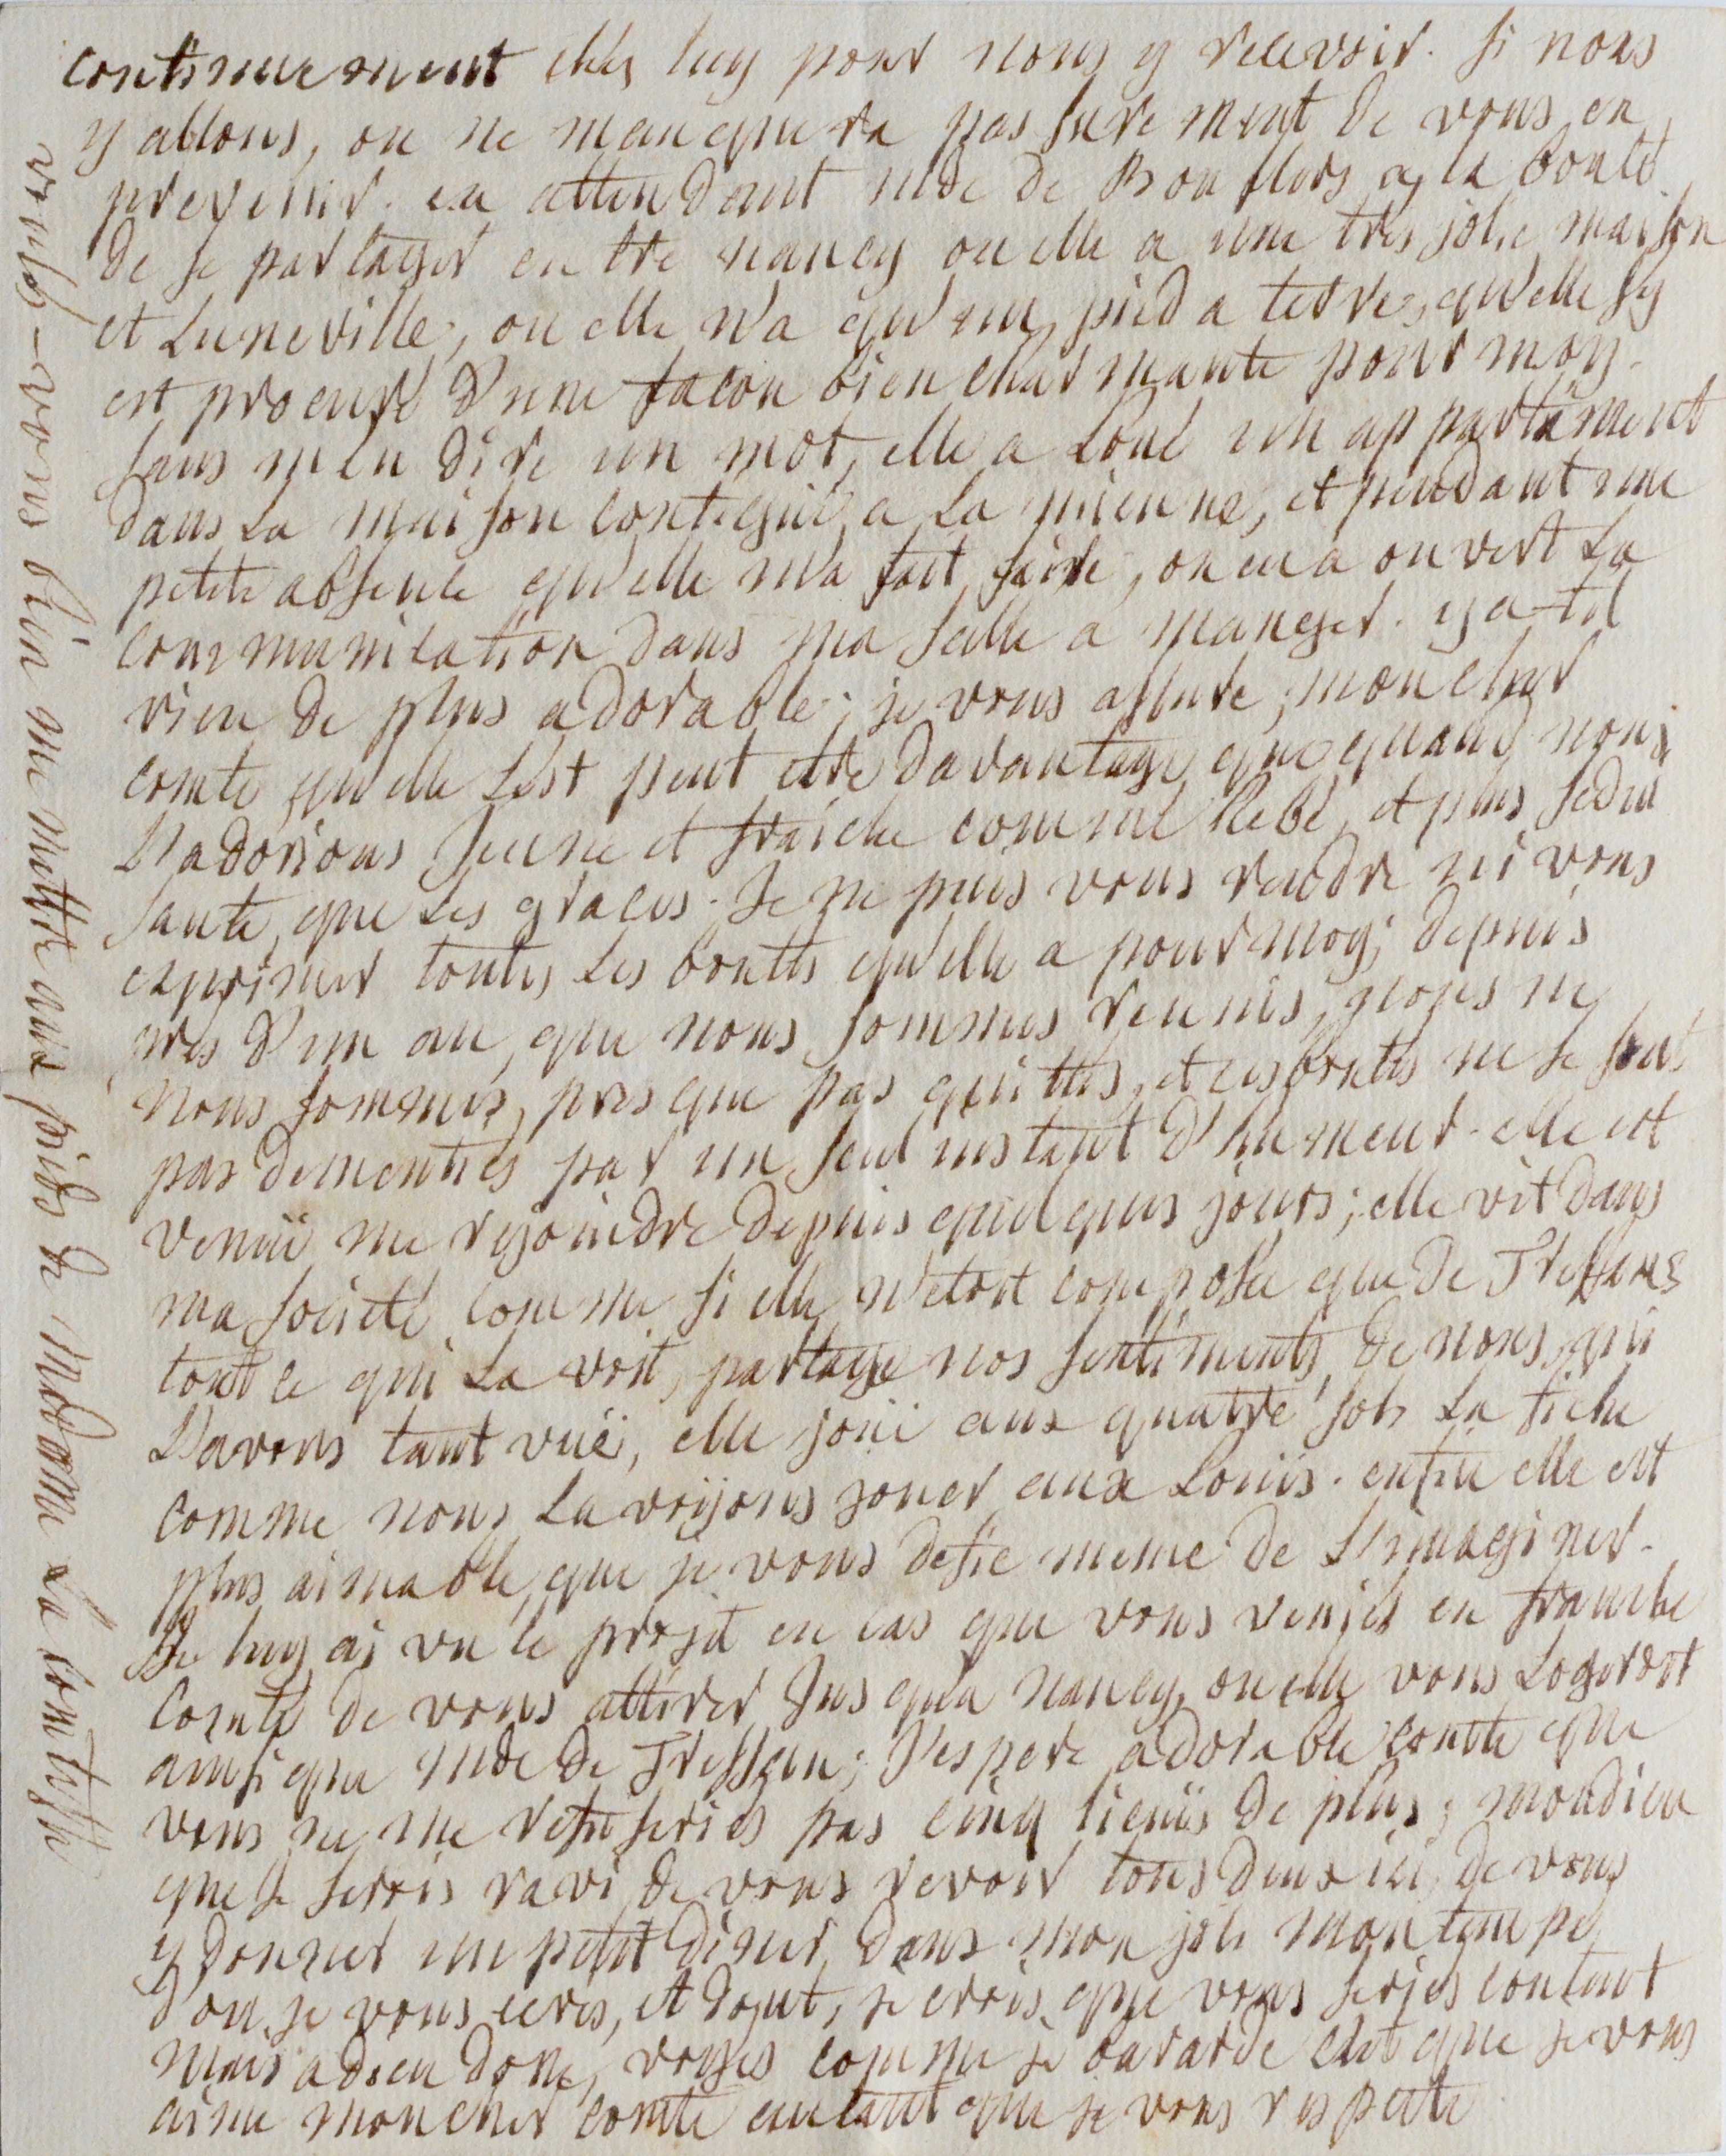 continuement chés luy pour nous y recevoir. si nous
y allons, on ne manquera pas surement de vous en
prevenir. en attendant mde de Boufflers a la bonté
de se partager entre nancy ou elle a une tres jolie maison
et Luneville, ou elle n'a qu'un pied a terre, qu'elle s'y
est procuré d'une facon bien charmante pour moy.
sans m'en dire un mot, elle a loué un appartement
dans la maison contiguë a la mienne, et pendant une
petite absence qu'elle m'a fait faire, on en a ouvert la
communication dans ma salle a manger. y a til
rien de plus adorable; je vous assure, mon cher
comte, qu'elle l'est peut etre davantage que quand nous
L'adorions jeune et fraiche comme hebé, et plus sedui
sante, que les graces. Je ne puis vous rendre ni vous
exprimer toutes les bontés qu'elle a pour moy; depuis
prés d'un an, que nous sommes reunis, nous ne
nous sommes presque pas quittés, et ces bontés ne se sont
pas dementies par un seul instant d'humeur. elle est
venuë me rejoindre depuis quelques jours; elle vit dans
ma societé comme si elle n'etoit composée que de Tressans
tout ce qui la voit, partage nos sentiments, de nous, qui
L'avons tant vuë, elle jouë aux quatre sols la fiche
comme nous la voyions jouer aux Louis. enfin elle est
plus aimable, que je vous defie meme de L'imaginer.
Je luy ai vu le projet en cas que vous veniés en franche
Comté de vous attirer jusqu'a nancy, ou elle vous logeroit
ainsi que mde de Tressan; J'espere adorable comte que
vous ne me refuseriés pas cinq lieuës de plus; mon dieu
que je serois ravi de vous revoir tous deux ici, de vous
y donner un petit diner dans mon joli montempé
d'ou je vous ecris, et dont, je crois que vous seriés content
mais adieu donc, voyés comme je bavarde c'est que je vous
aime mon cher comte autant que je vous respecte
voulés-vous bien me mettre aux pieds de Madame La Comtesse